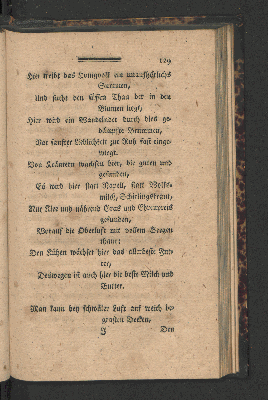 129
Hier treibt das Honigvolk ein unaufhörlichs
Summen,
Und sucht den süssen Thau der in den
Blumen liegt,
Hier wird ein Wandrer durch dies ge-
dämpfte Brummen,
Vor sanfter Lieblichkeit zur Ruh fast einge-
wiegt.
Von Kräutern wachsen hier, die guten und
gesunden,
Es wird hier statt Napell, statt Wolfs-
milch, Schierlingskraut,
Nur Klee und nährend Gras und Ehrenpreis
gefunden,
Worauf die Oberluft mit vollem Seegen
thaut:
Den Kühen wächset hier das allerbeste Fut-
ter,
Deswegen ist auch hier die beste Milch und
Butter.
Man kann bey schwüler Luft auf weich be-
grasten Decken,
J Den